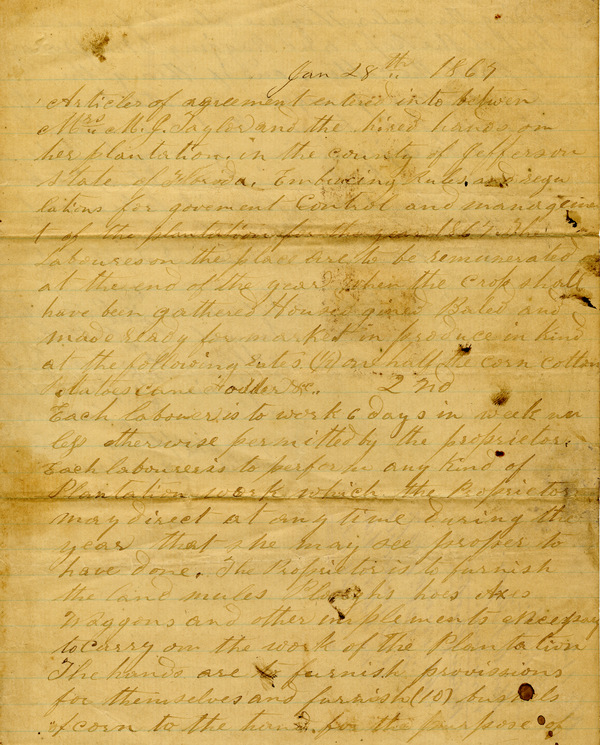 Jan 28th 1867
Articles of agreement entered into betwen
Mrs M. J. Taylor and the hired hands on
her plantation. in the county of Jefferson
State of Floroda. Embracing Rules and regu
lations for goverment Control and managemen
t of the plantation for the year 1867. The
Laboures on the place are to be remunerated
at the end of the year when the crop shall
have been gathered Housed gined Baled and
made ready for market in produce in kind
at the following rates (½) on half the corn cotton
potatoes cane Fodder &c. 2nd
Each labourer is to work 6 days in week un
less otherwise permitted by the proprietor.
Each labourer is to perform any kind of
Plantation work which the Proprietor
may direct at any time during the
year that she may see proper to
have done. The Proprietor is to furnish
the land mules Ploughs hoes Axes
Waggons and other implements Necessary
to carry on the work of the Plantation
The hands are to furnish provisions
for themselves and furnish (10) bushels
of corn to the hand. for the purpose of